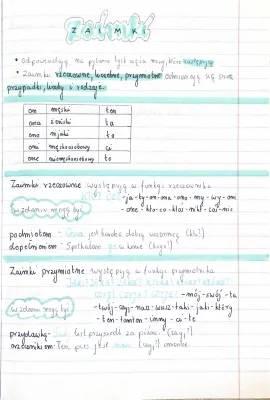 ZAIMKI
• odpowiadają na pytania tych części mowy, które zastępują
• Zaimki rzeczowne, liczebne, przymiotne odmieniają się przez
przypadki, liczby i rodzaje.
on męski ten
ona żeński ta
ono nijaki to
oni męskoosobowy ci
one niemęskoosobowy te
Zaimki rzeczowne występują w funkcji rzeczownika
- ja - ty - on - ona - ono - my - wy - oni
w zdaniu mogą być - one - kto - co - ktoś - nikt - coś - nic
podmiotem - jest bardzo dobrą uczennicą (kto?)
dopełnieniem - Spotkałam go w kinie (kogo?)
Zaimki przymiotne występują w funkcji przymiotnika
- mój - swój - ta
w zdaniu mogą być - twój - czyj - nasz - wasz - taki - jaki - który
- ten - tamten - inny - ci - te
przydawką - list przyszedł za późno. (czyj?)
orzecznikiem - Ten pies jest (czyj?)